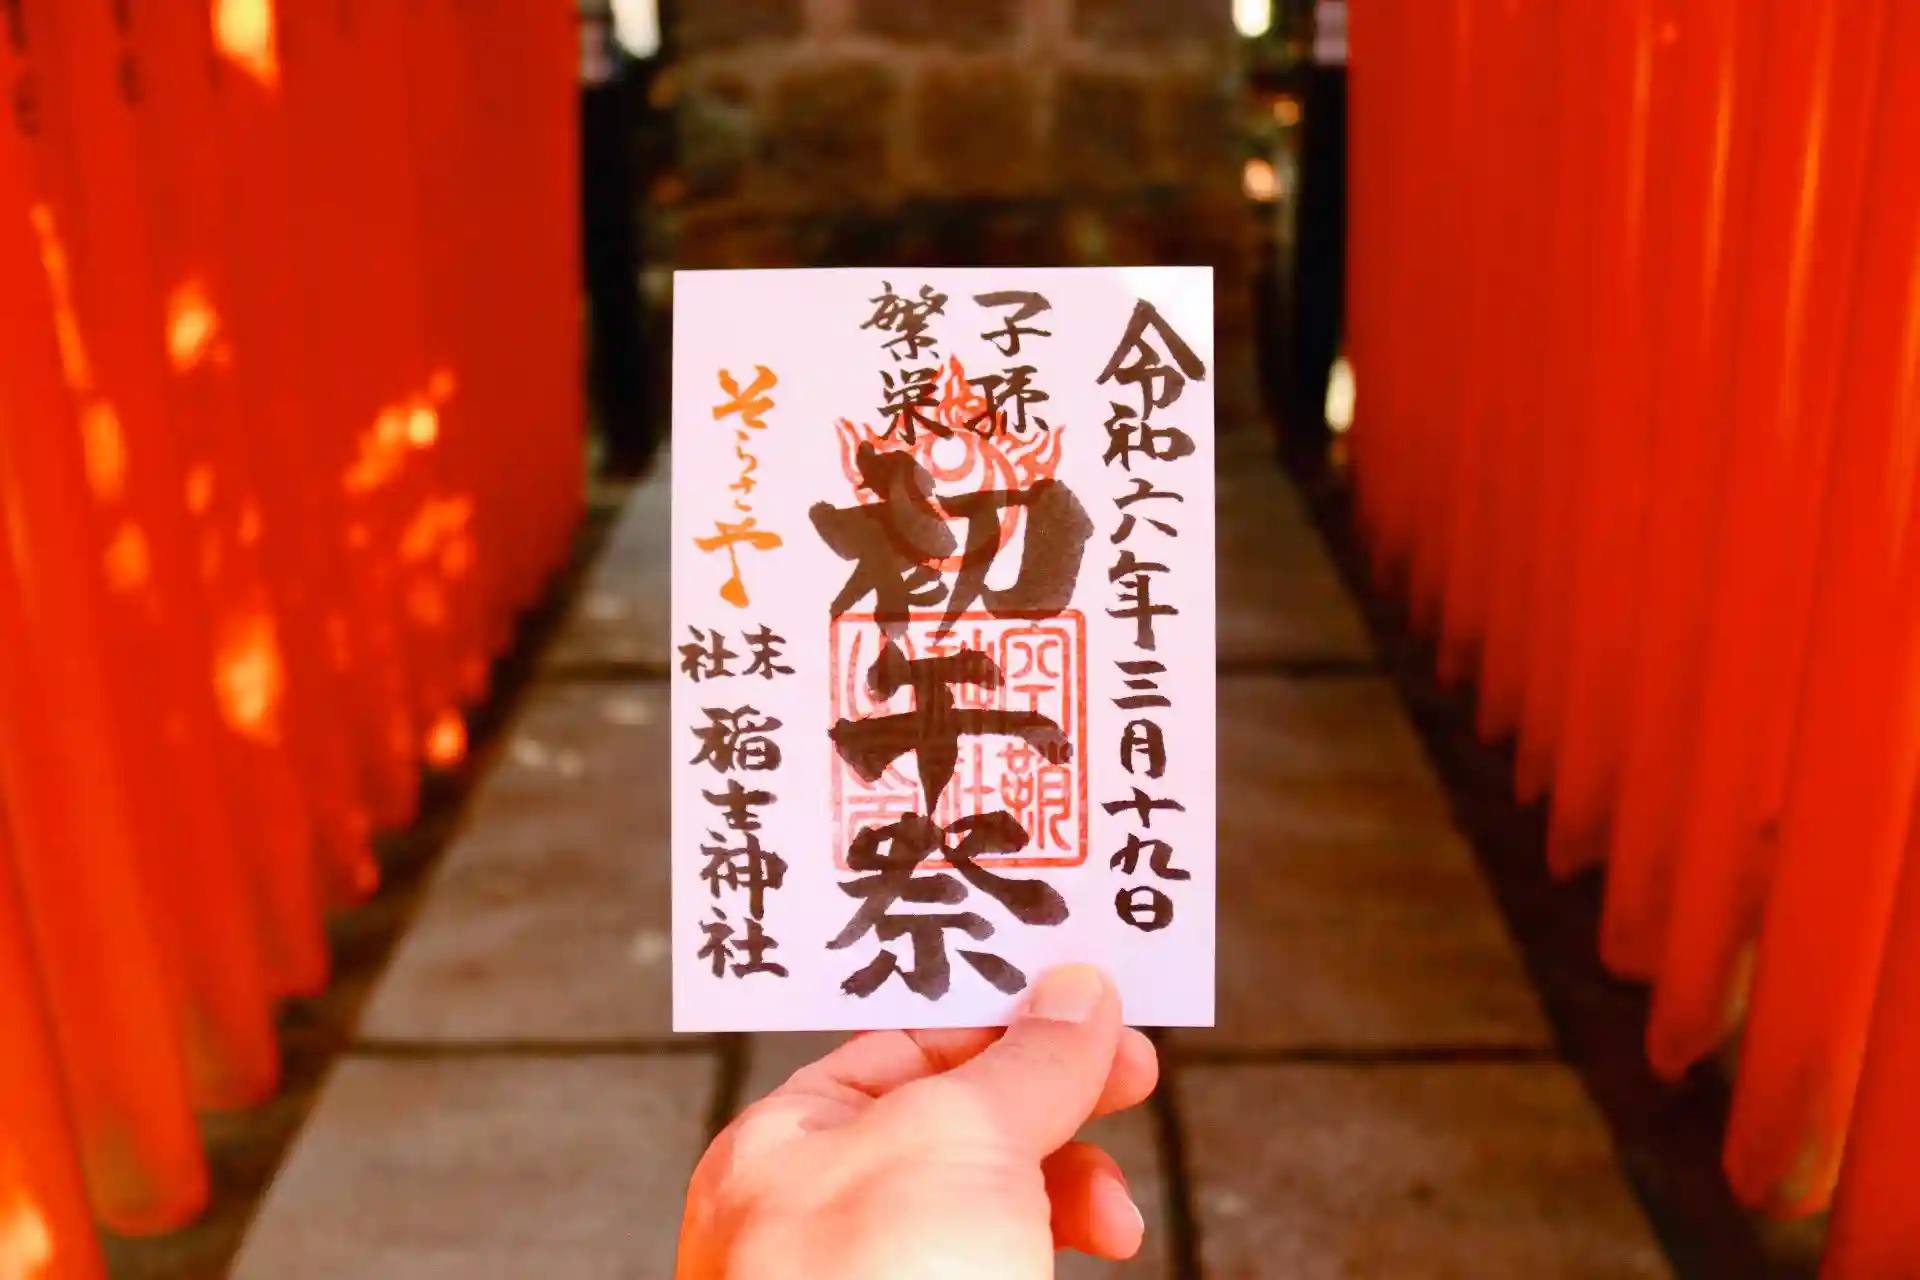 令和六年三月十九日
子孫
繁栄
初午祭
空鞘
神社
之印
そらさや
末社
稲生神社